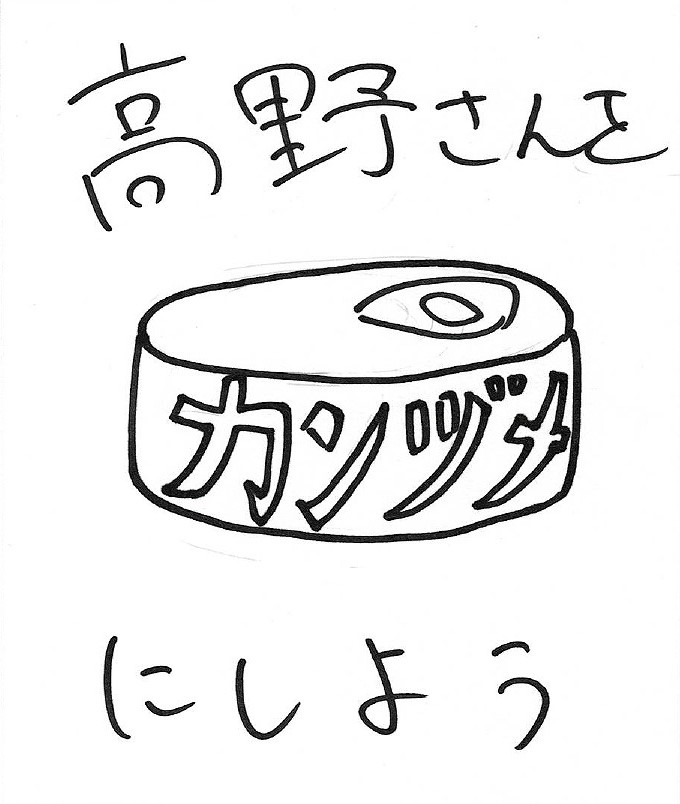 高野さんを
カンヅメ
にしよう